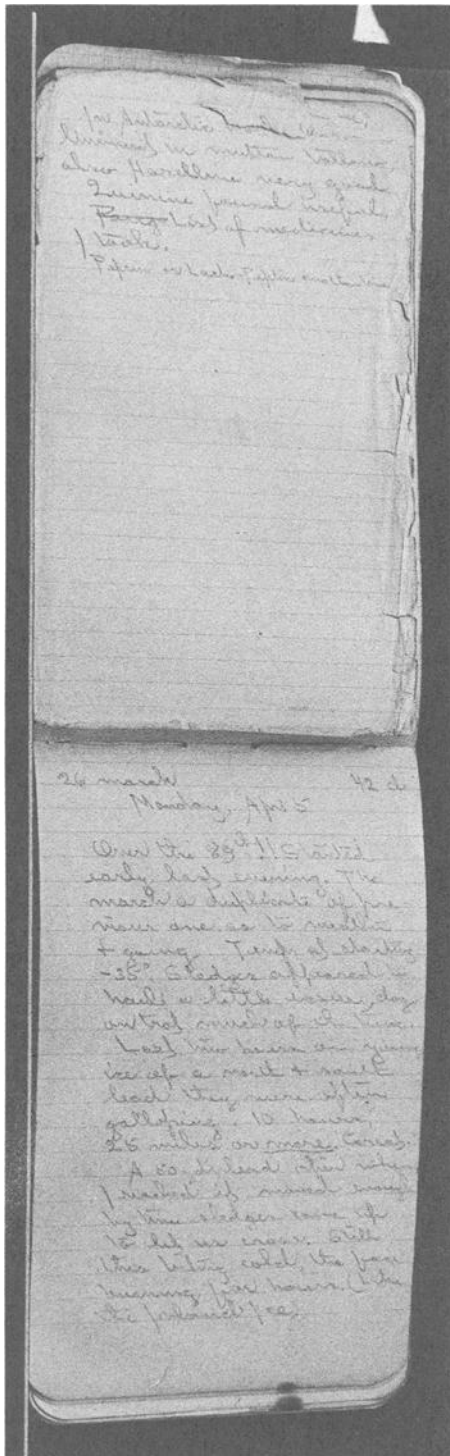 In Antarctic
liniment in mutton tallow,
also Hazeline very good
Quinine found useful.
List of medicines
I took.
26 march 42 d
Monday, Apr 5
Over the 89th!! Started
early last evening. The
march a duplicate of pre-
vious one as to weather
& going. Temp. at starting
-35° Sledges appeared to
haul a little easier, dogs
on trot much of the time.
Last two hours on young
ice of a north & south
lead they were often
galloping. 10 hours,
25 miles or more. Great.
A 50 yd. lead open when
I reached it moved enough
by time sledges came up
to let us cross. Still
this biting cold, the face
burning for hours. (like
the